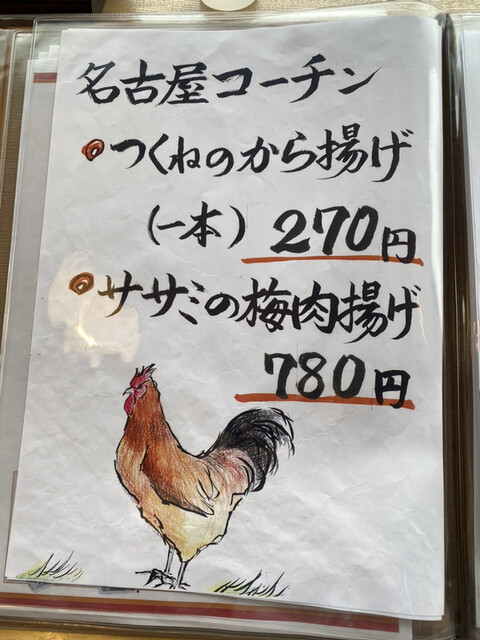 名古屋コーチン
つくねのから揚げ
(一本) 270円
ササミの梅肉揚げ
780円